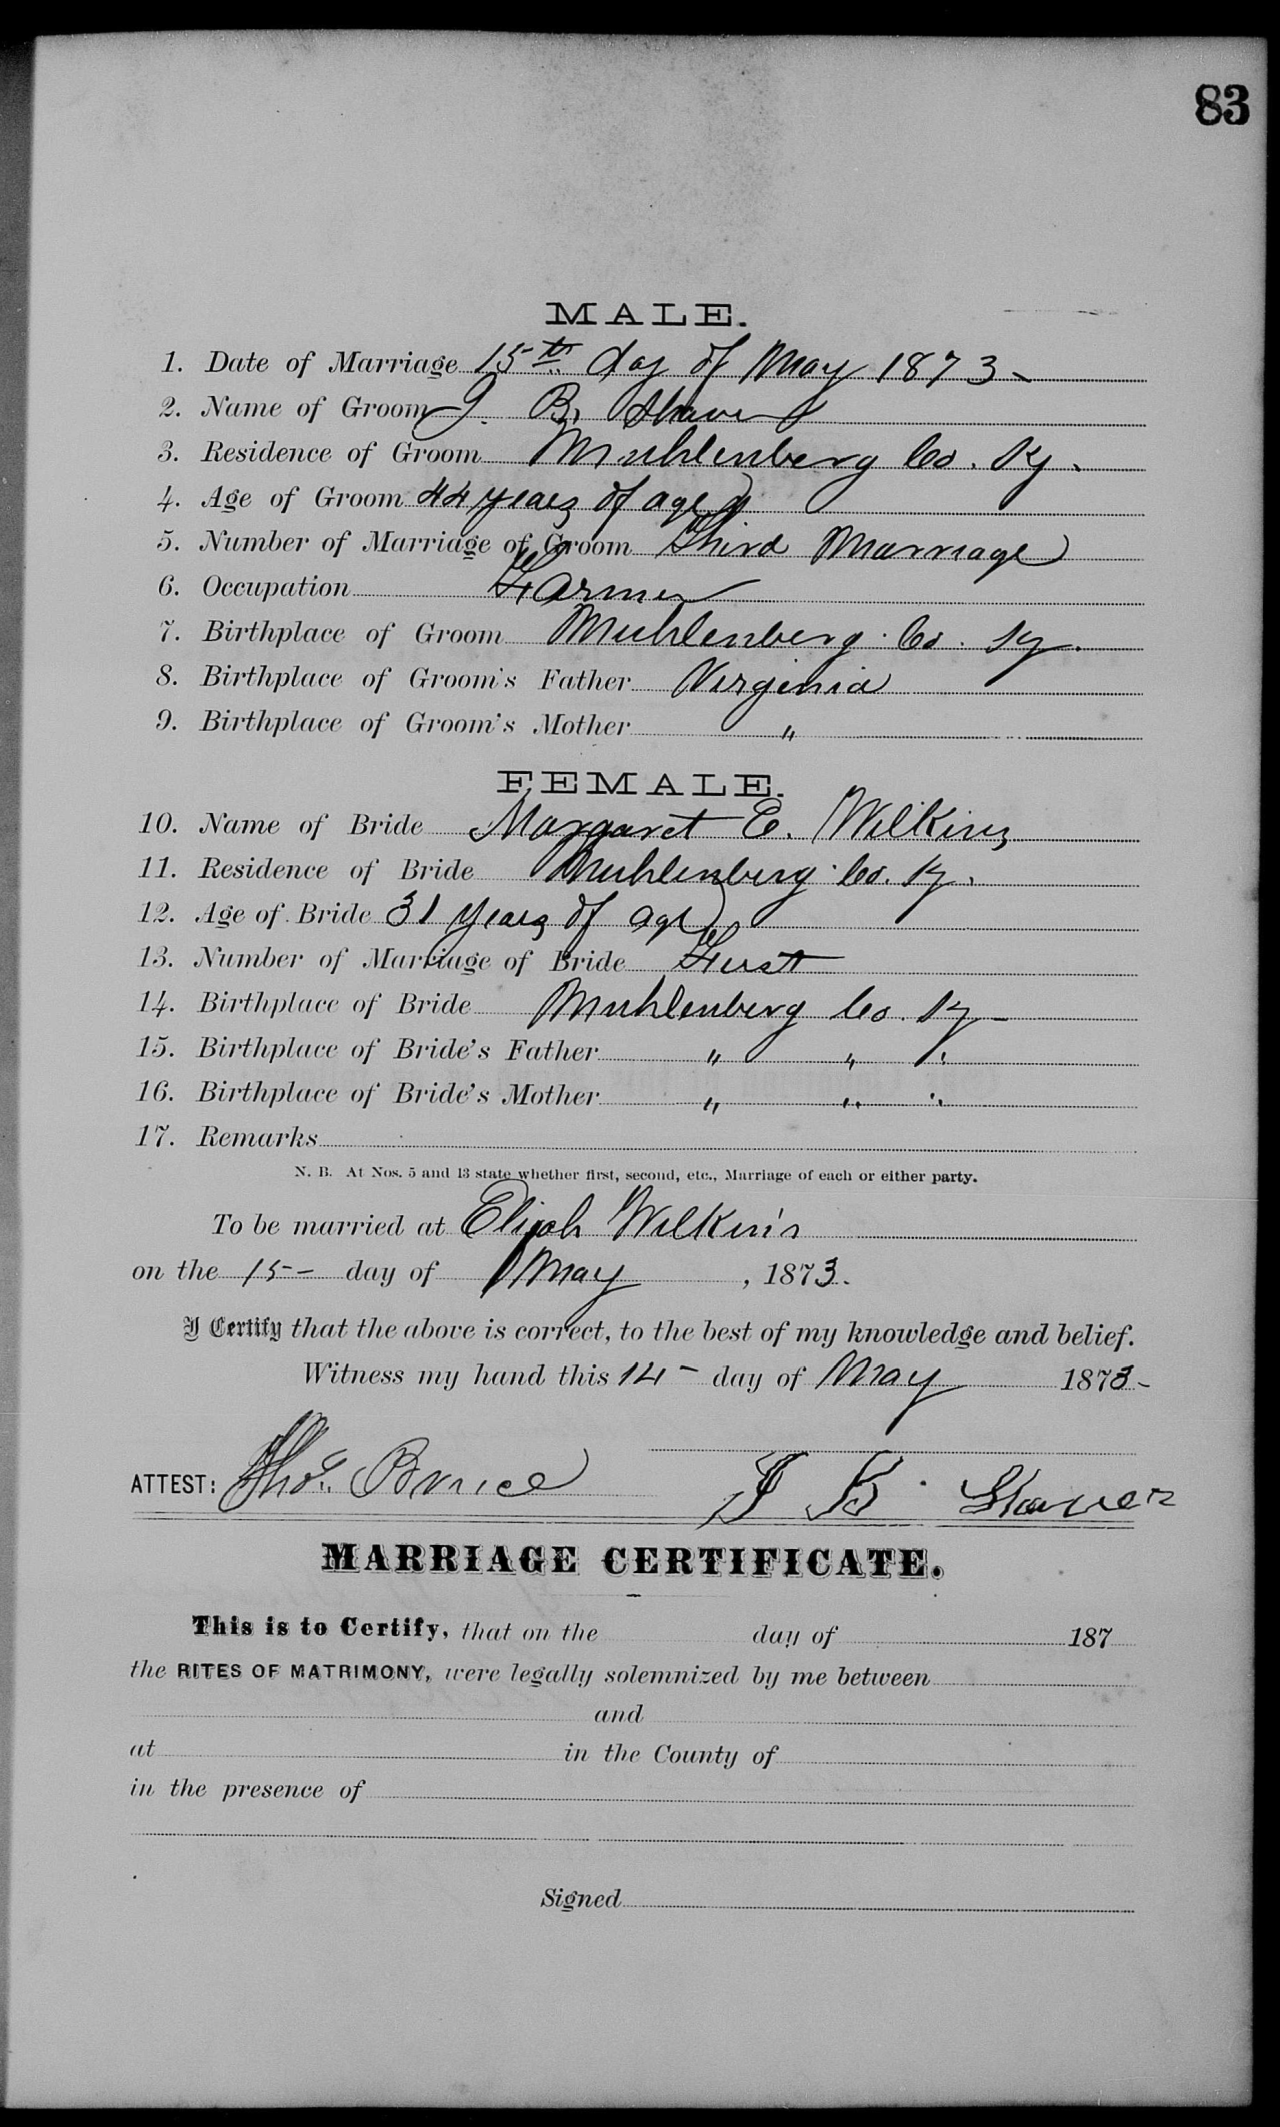 83
MALE.
1. Date of Marriage 15th day of May 1873-
2. Name of Groom J. B. Shaver
3. Residence of Groom Muhlenberg Co. Ky.
4. Age of Groom 44 years of age
5. Number of Marriage of Groom Third Marriage
6. Occupation Farmer
7. Birthplace of Groom Muhlenberg Co. Ky.
8. Birthplace of Groom's Father Virginia
9. Birthplace of Groom's Mother "
FEMALE.
10. Name of Bride Margaret E. Wilkins
11. Residence of Bride Muhlenberg Co. Ky.
12. Age of Bride 31 years of age
13. Number of Marriage of Bride First
14. Birthplace of Bride Muhlenberg Co. Ky-
15. Birthplace of Bride's Father " " "
16. Birthplace of Bride's Mother " " "
17. Remarks
N. B. At Nos. 5 and 13 state whether first, second, etc., Marriage of each or either party.
To be married at Elijah Wilkin's
on the 15- day of May, 1873.
I Certify that the above is correct, to the best of my knowledge and belief.
Witness my hand this 14- day of May 1873-
ATTEST: Thos. Bruce J B. Shaver
MARRIAGE CERTIFICATE.
This is to Certify, that on the day of 187
the RITES OF MATRIMONY, were legally solemnized by me between
and
at in the County of
in the presence of
Signed